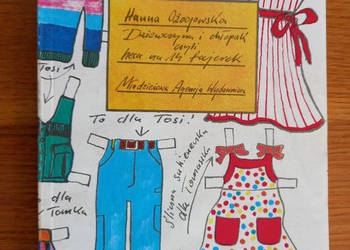 Hanna Ożogowska
Dziewczyna i chłopak
czyli
heca na 14 fajerek
Młodzieżowa Agencja Wydawnicza
Tosi!
To dla Tosi!
To dla
Tomka
Śliczna sukieneczka
dla Tomasika